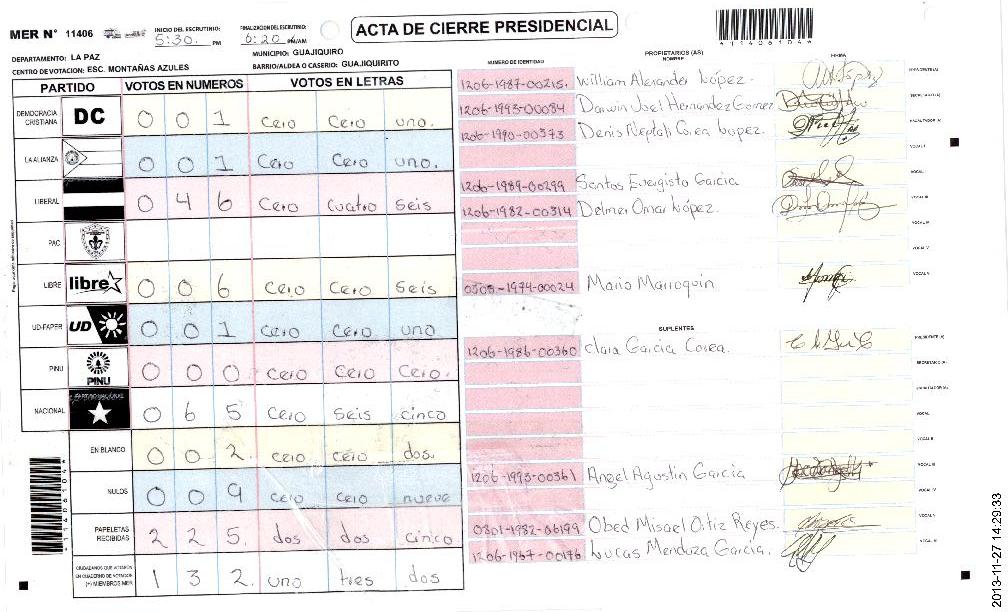 MER N° 11406
INICIO DEL ESCRUTINIO: 5:30. PM
FINALIZACION DEL ESCRUTINIO: 6:20 PM/AM
ACTA DE CIERRE PRESIDENCIAL
*11406104*
DEPARTAMENTO: LA PAZ
MUNICIPIO: GUAJIQUIRO
CENTRO DE VOTACION: ESC. MONTAÑAS AZULES
BARRIO/ALDEA O CASERIO: GUAJIQUIRITO
PARTIDO VOTOS EN NUMEROS VOTOS EN LETRAS
DEMOCRACIA CRISTIANA DC 0 0 1 cero cero uno.
LA ALIANZA 0 0 1 cero cero uno.
LIBERAL 0 4 6 cero cuatro seis
PAC
LIBRE libre 0 0 6 cero cero seis
UD-FAPER UD 0 0 1 cero cero uno
PINU PINU 0 0 0 cero cero cero.
NACIONAL 0 6 5 cero seis cinco
EN BLANCO 0 0 2. cero cero dos.
NULOS 0 0 9 cero cero nueve
PAPELETAS RECIBIDAS 2 2 5. dos dos cinco
CIUDADANOS QUE VOTARON EN CUADERNO DE VOTACION (+) MIEMBROS MER 1 3 2. uno tres dos
*11406104*
NUMERO DE IDENTIDAD
PROPIETARIOS (AS)
NOMBRE
FIRMA
1206-1987-00215. William Alexander López. PRESIDENTE (A)
1206-1993-00084 Darwin Joel Hernandez Gomez SECRETARIO (A)
1206-1990-00373 Denis Neptali Corea Lopez. ESCRUTADOR (A)
VOCAL I
1206-1989-00299 Santos Evergisto Garcia
1206-1982-00314 Delmer Omar López. VOCAL III
VOCAL IV
VOCAL V
0303-1974-00024 Mario Marroquin
SUPLENTES
1206-1986-00360 Clara Garcia Corea. PRESIDENTE (A)
SECRETARIO (A)
ESCRUTADOR (A)
VOCAL
VOCAL II
1206-1993-00361 Angel Agustin Garcia VOCAL III
VOCAL IV
0801-1982-06199 Obed Misael Ortiz Reyes. VOCAL V
1206-1967-00176 Lucas Mendoza Garcia.
2013-11-27 14:29:33